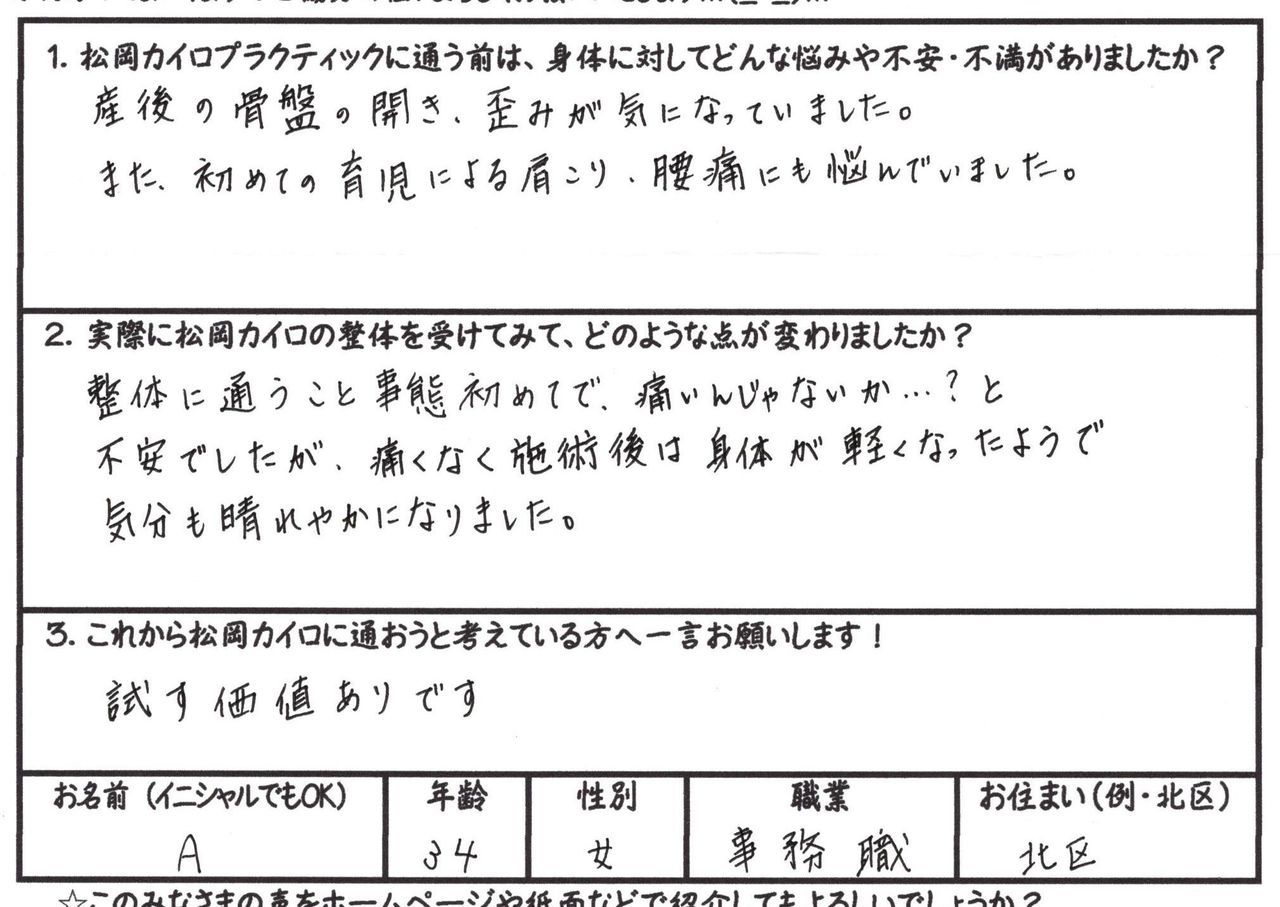 1. 松岡カイロプラクティックに通う前は、身体に対してどんな悩みや不安・不満がありましたか？
産後の骨盤の開き、歪みが気になっていました。
また、初めての育児による肩こり、腰痛にも悩んでいました。
2. 実際に松岡カイロの整体を受けてみて、どのような点が変わりましたか？
整体に通うこと事態初めてで、痛いんじゃないか…？と
不安でしたが、痛くなく施術後は身体が軽くなったようで
気分も晴れやかになりました。
3. これから松岡カイロに通おうと考えている方へ一言お願いします！
試す価値ありです
お名前（イニシャルでもOK） 年齢 性別 職業 お住まい（例・北区）
A 34 女 事務職 北区
☆このみなさまの声をホームページや紙面などで紹介してもよろしいでしょうか？